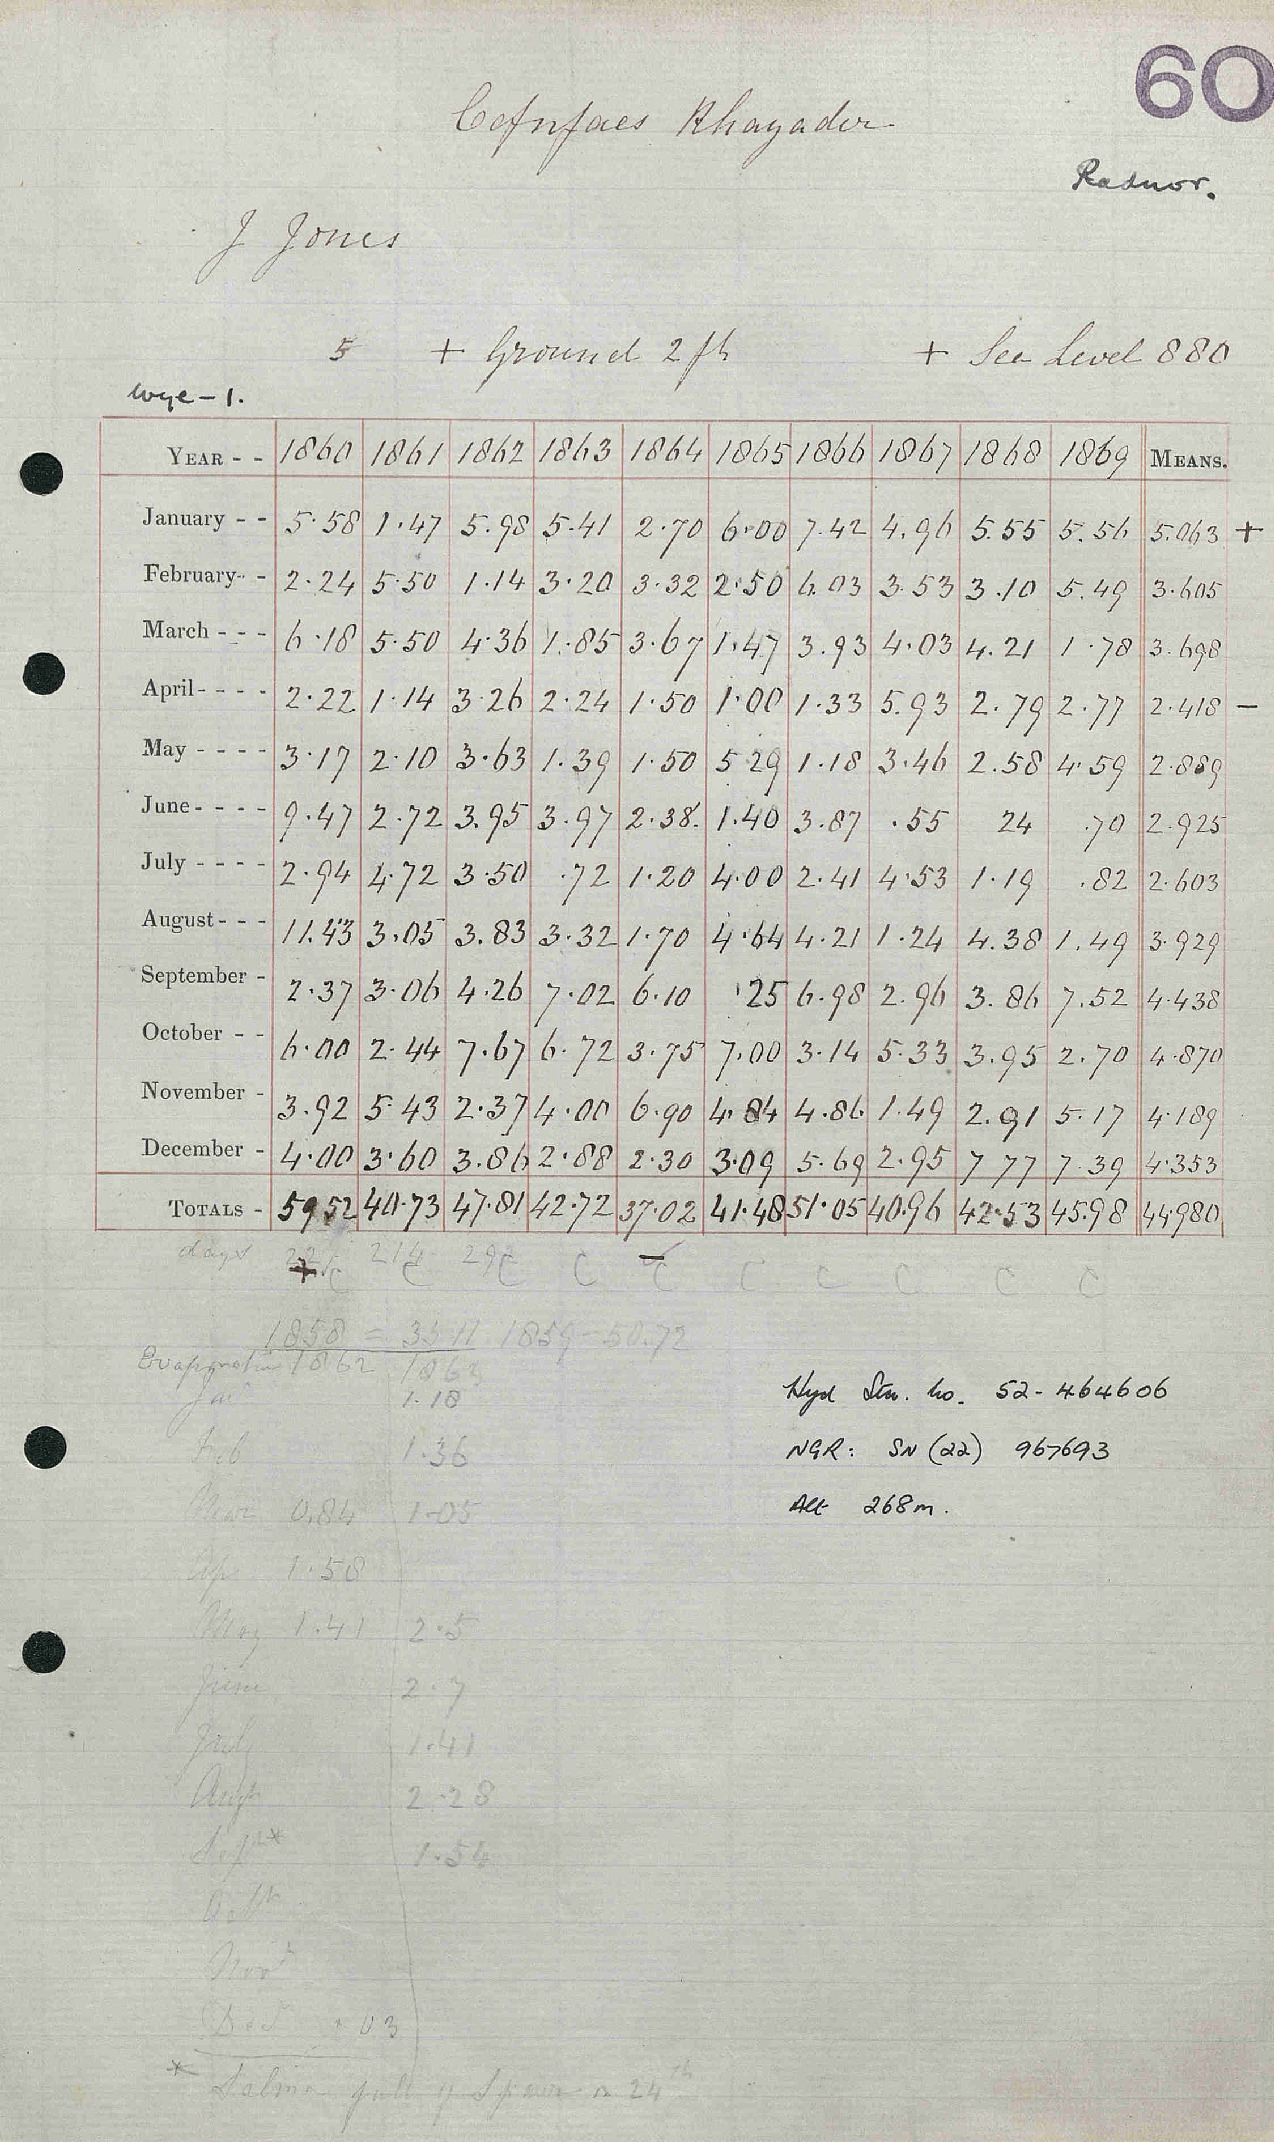 60
Cefnfaes Rhayader
Radnor.
J Jones
5 + Ground 2 ft + Sea Level 880
Wye - 1.
YEAR - - 1860 1861 1862 1863 1864 1865 1866 1867 1868 1869 MEANS.
January - - 5.58 1.47 5.98 5.41 2.70 6.00 7.42 4.96 5.55 5.56 5.063 +
February - - 2.24 5.50 1.14 3.20 3.32 2.50 6.03 3.53 3.10 5.49 3.605
March - - - 6.18 5.50 4.36 1.85 3.67 1.47 3.93 4.03 4.21 1.78 3.698
April - - - - 2.22 1.14 3.26 2.24 1.50 1.00 1.33 5.93 2.79 2.77 2.418 -
May - - - - 3.17 2.10 3.63 1.39 1.50 5.29 1.18 3.46 2.58 4.59 2.889
June - - - - 9.47 2.72 3.95 3.97 2.38 1.40 3.87 .55 24 .70 2.925
July - - - - 2.94 4.72 3.50 .72 1.20 4.00 2.41 4.53 1.19 .82 2.603
August - - - 11.43 3.05 3.83 3.32 1.70 4.64 4.21 1.24 4.38 1.49 3.929
September - 2.37 3.06 4.26 7.02 6.10 .25 6.98 2.96 3.86 7.52 4.438
October - - 6.00 2.44 7.67 6.72 3.75 7.00 3.14 5.33 3.95 2.70 4.870
November - 3.92 5.43 2.37 4.00 6.90 4.84 4.86 1.49 2.91 5.17 4.189
December - 4.00 3.60 3.86 2.88 2.30 3.09 5.69 2.95 7.77 7.39 4.353
TOTALS - 59.52 40.73 47.81 42.72 37.02 41.48 51.05 40.96 42.53 45.98 44.980
days 214
+ C C C C - C C C C C C
1858 = 1859 = 50.72
Evaporation 1862 1863
Jan 1.18
Feb 1.36
Mar 0.84 1.05
Ap 1.58
May 1.41 2.5
June 2.7
July 1.41
Augt 2.28
Sept* 1.54
Oct
Nov
Dec .03
* 24th
Hyd Stn. No. 52-464606
NGR: SN (22) 967693
Alt 268m.